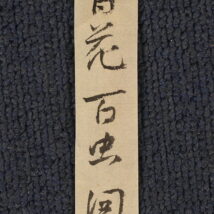 百花百虫図